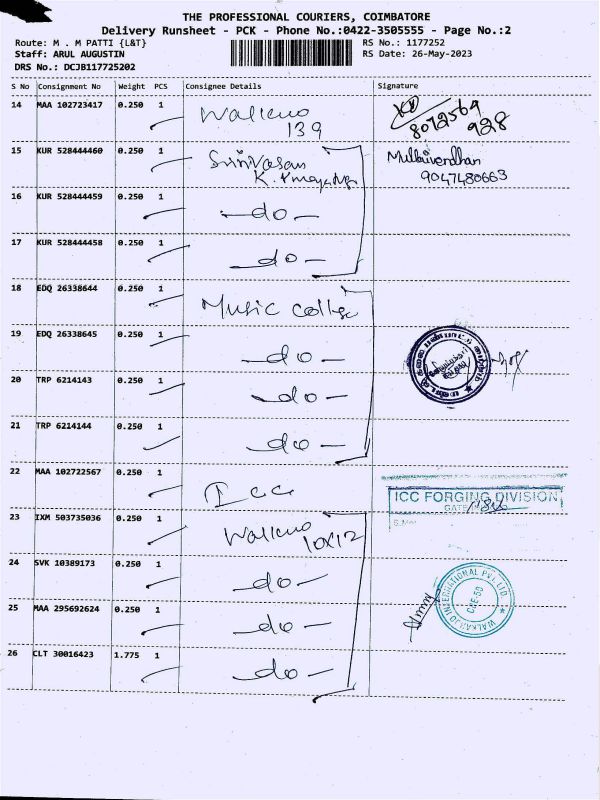 THE PROFESSIONAL COURIERS, COIMBATORE
Delivery Runsheet - PCK - Phone No.:0422-3505555 - Page No.:2
Route: M . M PATTI {L&T} RS No.: 1177252
Staff: ARUL AUGUSTIN RS Date: 26-May-2023
DRS No.: DCJB117725202
S No Consignment No Weight PCS Consignee Details Signature
14 MAA 102723417 0.250 1
139 8072569
928
15 KUR 528444460 0.250 1 Srinivasan
K. 9047480663
16 KUR 528444459 0.250 1 - do -
17 KUR 528444458 0.250 1 - do -
18 EDQ 26338644 0.250 1 Music college
19 EDQ 26338645 0.250 1 - do -
20 TRP 6214143 0.250 1 - do -
21 TRP 6214144 0.250 1 - do -
22 MAA 102722567 0.250 1 ICC
ICC FORGING DIVISION
GATE
23 IXM 503735036 0.250 1
10x12
24 SVK 10389173 0.250 1 - do -
25 MAA 295692624 0.250 1 - do -
26 CLT 30016423 1.775 1 - do -
INTERNATIONAL PVT LTD